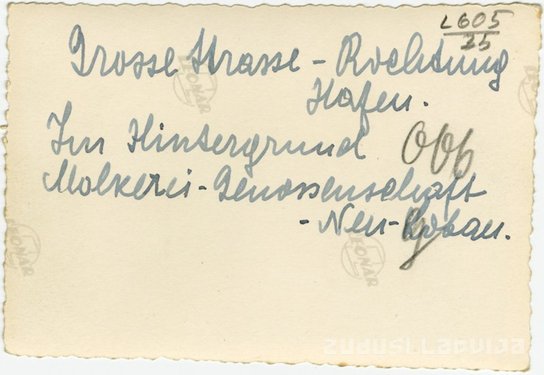 L605
25
Grosse Strasse - Rochtung
Hafen.
Im Hintergrund
006
Molkerei-Genossenschaft
- Neu-
LEONAR
LEONAR
LEONAR
zudusilatvija